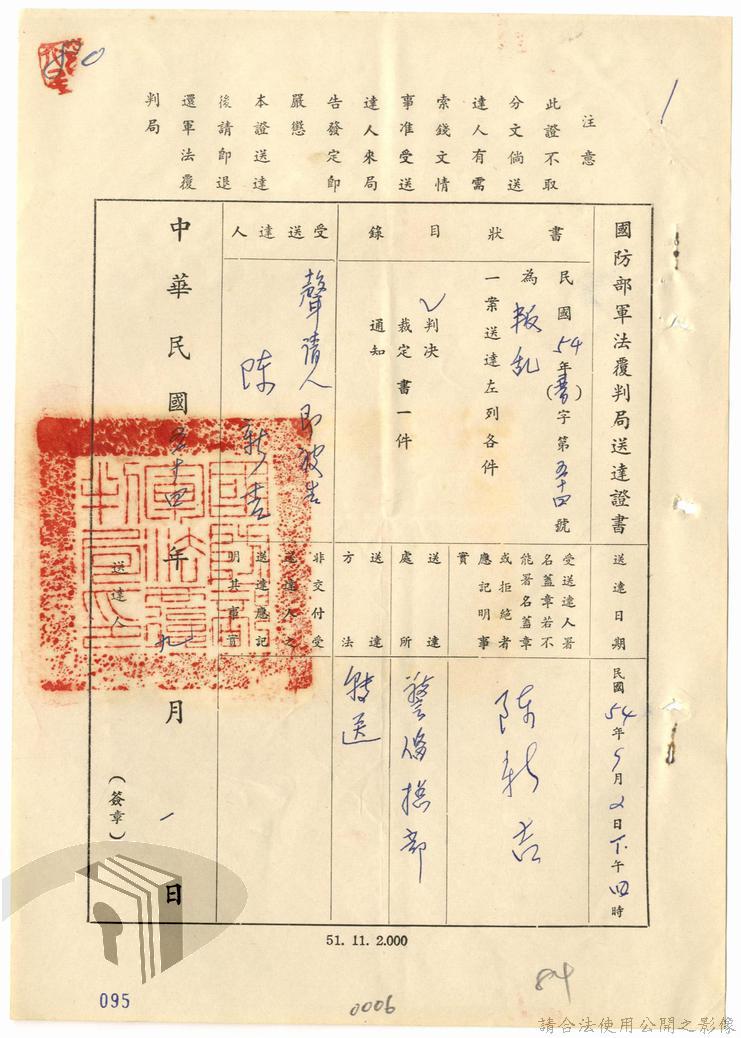 注意
此證不取
分文倘送
達人有需
索錢文情
事准受送
達人來局
告發定卽
嚴懲
本證送達
後請卽退
還軍法覆
判局
國防部軍法覆判局送達證書
送達日期
民國54年9月2日下午四時
書狀目錄
民國54年(書)字第五十四號
為叛乱
一案送達左列各件
✓判決
裁定書一件
通知
受送達人署
名蓋章若不
能署名蓋章
或拒絕者
應記明事
實
陳新吉
送達處所
警俻揔部
送達方法
轉送
受送達人
聲請人即被告
陳新吉
非交付受
送達人之
送達應記
明其事實
中華民國五十四年九月一日
送達人
(簽章)
國防部軍法覆判局印
51. 11. 2.000
095
0006
84
請合法使用公開之影像